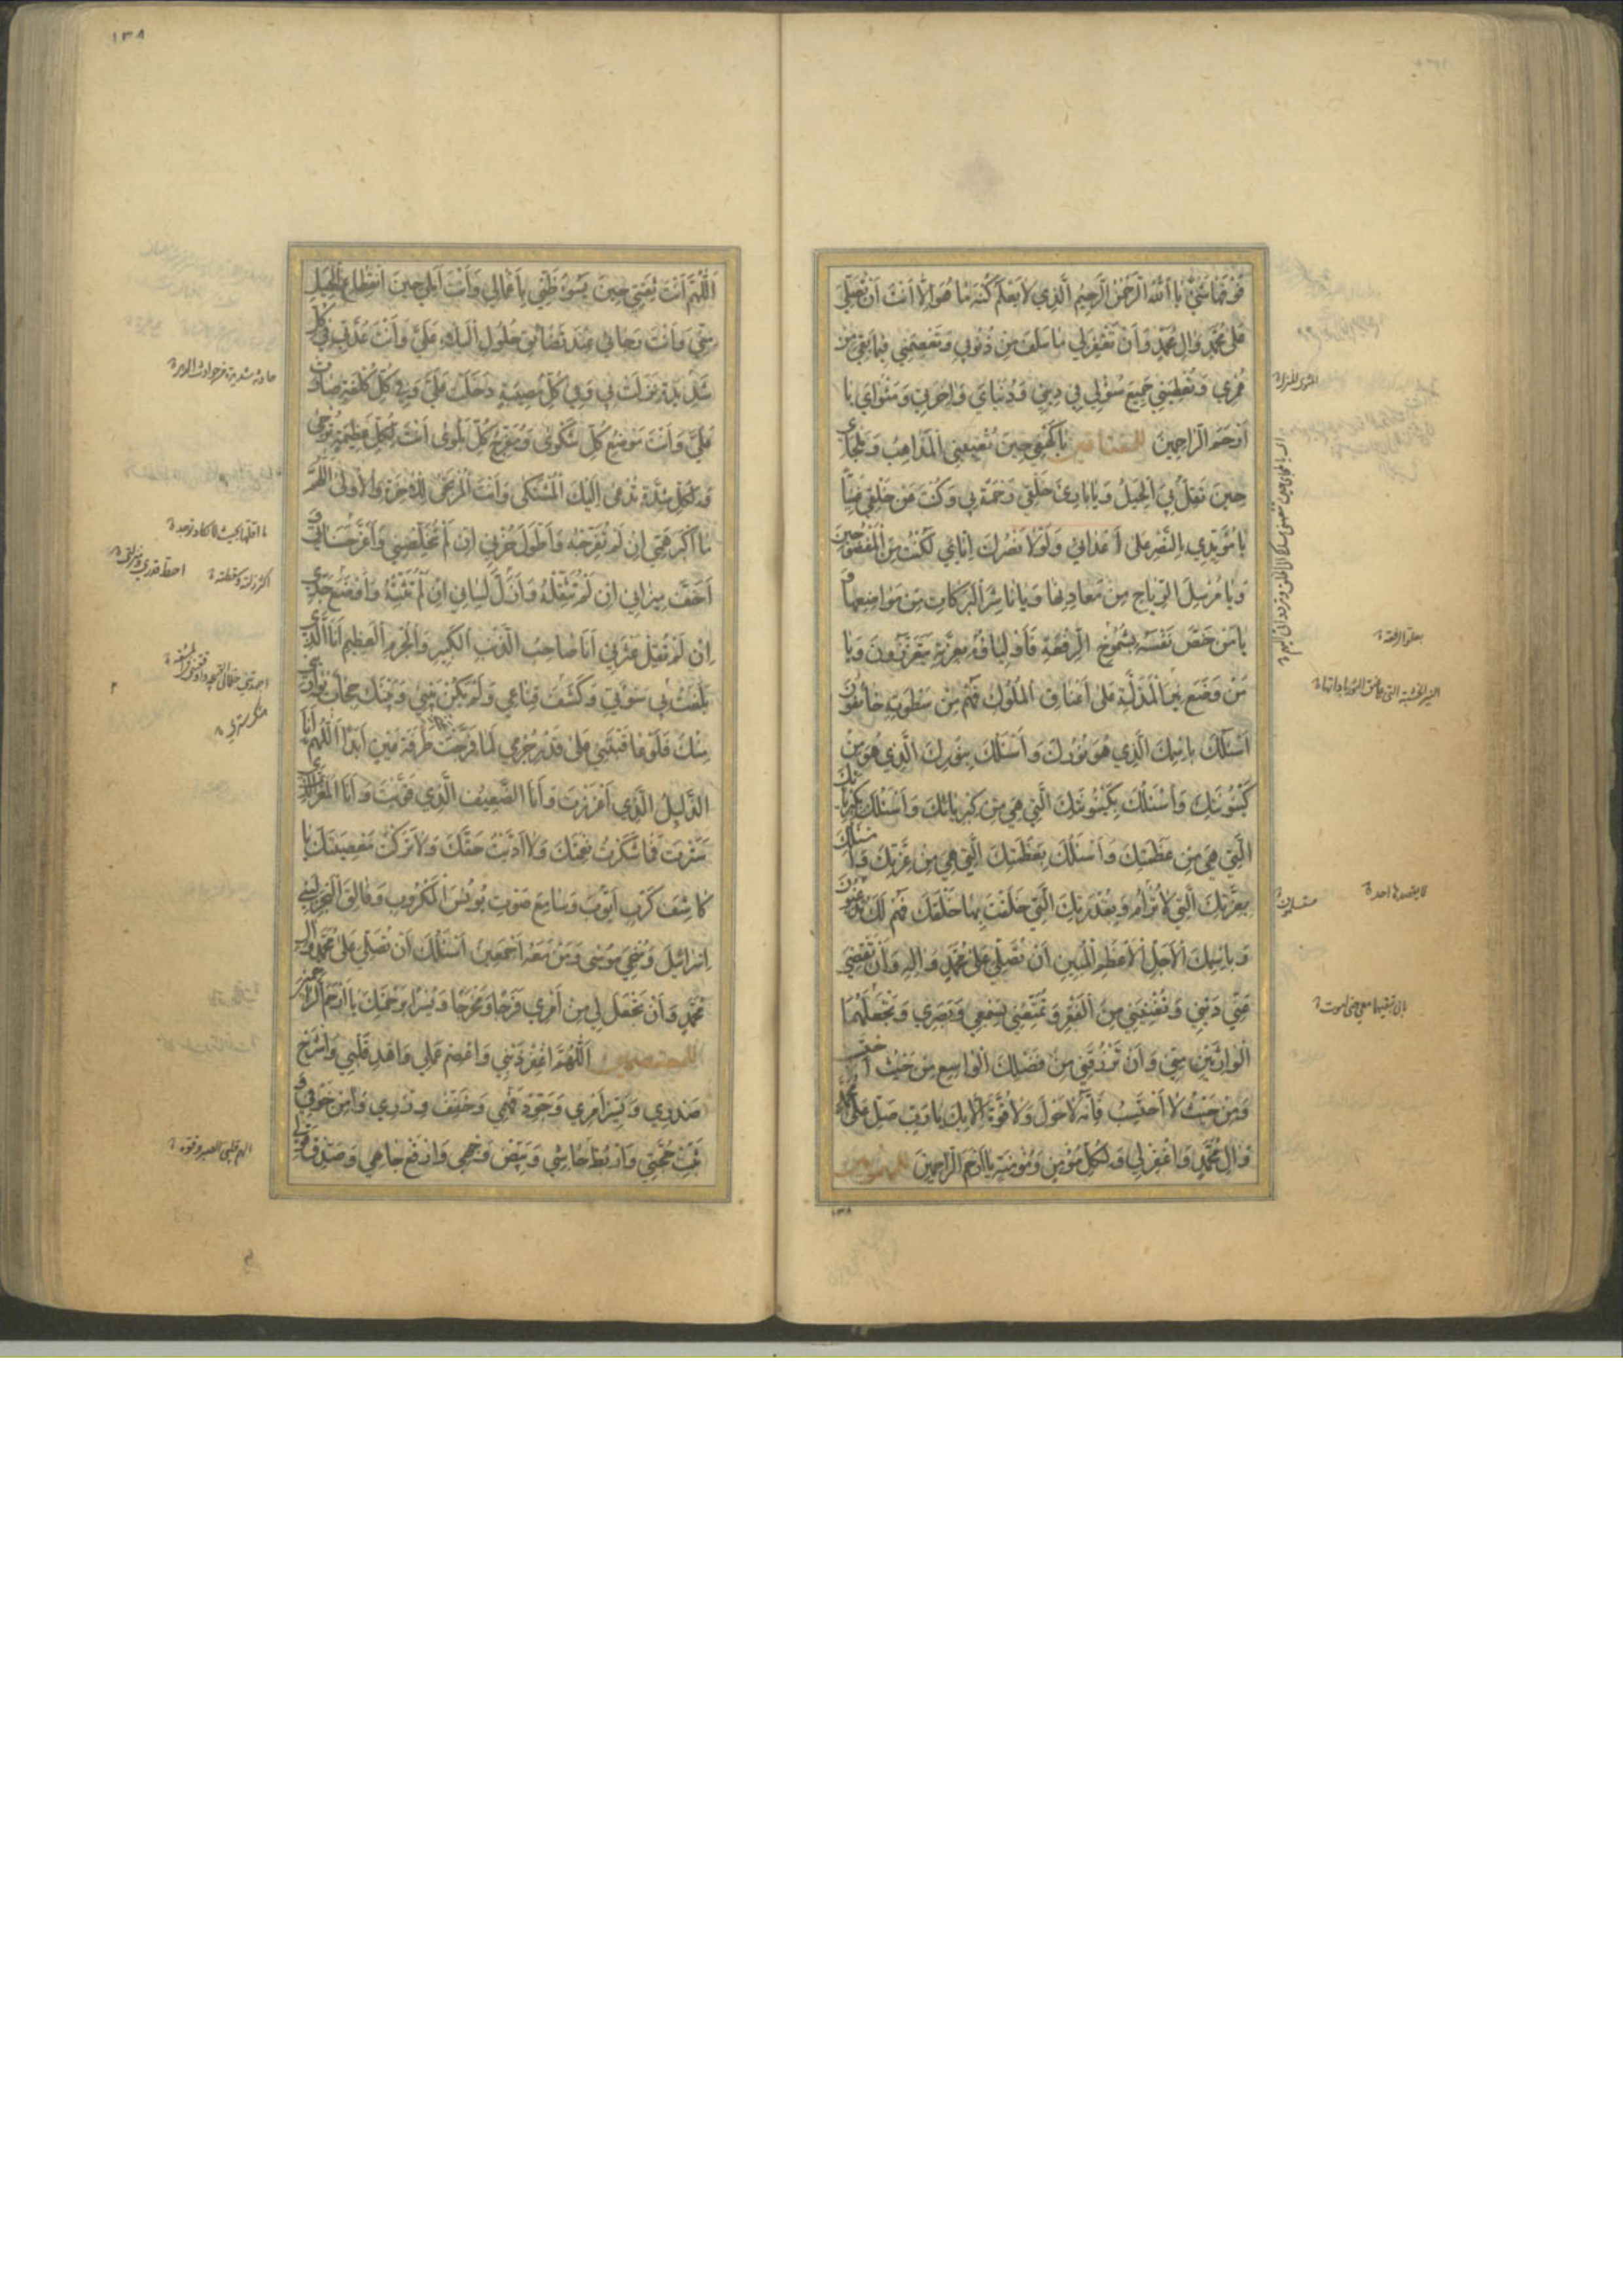 فَوْقَهَا شَيْءٌ يَا اَللّٰهُ الرَّحْمٰنُ الرَّحِيمُ الَّذِي لَا يَعْلَمُ كُنْهَ مَا هُوَ اِلَّا اَنْتَ اَنْ تُصَلِّيَ
عَلٰى مُحَمَّدٍ وَاٰلِ مُحَمَّدٍ وَاَنْ تَغْفِرَ لِي مَا سَلَفَ مِنْ ذُنُوبِي وَتَعْصِمَنِي فِيمَا بَقِيَ مِنْ
عُمْرِي وَتُعْطِيَنِي جَمِيعَ سُؤْلِي فِي دِينِي وَدُنْيَايَ وَاٰخِرَتِي وَمَثْوَايَ يَا
اَرْحَمَ الرَّاحِمِينَ يَا كَهْفِي حِينَ تُعْيِينِي الْمَذَاهِبُ وَمَلْجَاٰي
حِينَ تَقِلُّ بِيَ الْحِيَلُ وَيَا بَارِئَ خَلْقِي رَحْمَةً بِي وَكُنْتَ عَنْ خَلْقِي غَنِيًّا
يَا مُؤَيِّدِي بِالنَّصْرِ عَلٰى اَعْدَائِي وَلَوْلَا نَصْرُكَ اِيَّايَ لَكُنْتُ مِنَ الْمَفْضُوحِينَ
وَيَا مُرْسِلَ الرِّيَاحِ مِنْ مَعَادِنِهَا وَيَا نَاشِرَ الْبَرَكَاتِ مِنْ مَوَاضِعِهَا وَ
يَا مَنْ خَصَّ نَفْسَهُ بِشُمُوخِ الرِّفْعَةِ فَاَوْلِيَاؤُهُ بِعِزِّهِ يَتَعَزَّزُونَ وَيَا
مَنْ وَضَعَ نِيرَ الْمَذَلَّةِ عَلٰى اَعْنَاقِ الْمُلُوكِ فَهُمْ مِنْ سَطْوَتِهِ خَائِفُونَ
اَسْئَلُكَ بِاسْمِكَ الَّذِي هُوَ نُورُكَ وَاَسْئَلُكَ بِنُورِكَ الَّذِي هُوَ مِنْ
كَيْنُونَتِكَ وَاَسْئَلُكَ بِكَيْنُونَتِكَ الَّتِي هِيَ مِنْ كِبْرِيَائِكَ وَاَسْئَلُكَ بِكِبْرِيَائِكَ
الَّتِي هِيَ مِنْ عَظَمَتِكَ وَاَسْئَلُكَ بِعَظَمَتِكَ الَّتِي هِيَ مِنْ عِزَّتِكَ وَاَسْئَلُكَ
بِعِزَّتِكَ الَّتِي لَا تُرَامُ وَبِقُدْرَتِكَ الَّتِي خَلَقْتَ بِهَا خَلْقَكَ فَهُمْ لَكَ مُذْعِنُونَ
وَبِاسْمِكَ الْاَجَلِّ الْاَعْظَمِ الْمُبِينِ اَنْ تُصَلِّيَ عَلٰى مُحَمَّدٍ وَاٰلِهِ وَاَنْ تَقْضِيَ
عَنِّي دَيْنِي وَتُغْنِيَنِي مِنَ الْفَقْرِ وَتُمَتِّعَنِي بِسَمْعِي وَبَصَرِي وَتَجْعَلَهُمَا
الْوَارِثَيْنِ مِنِّي وَاَنْ تَرْزُقَنِي مِنْ فَضْلِكَ الْوَاسِعِ مِنْ حَيْثُ اَحْتَسِبُ
وَمِنْ حَيْثُ لَا اَحْتَسِبُ فَاِنَّهُ لَا حَوْلَ وَلَا قُوَّةَ اِلَّا بِكَ يَا رَبِّ صَلِّ عَلٰى مُحَمَّدٍ
وَاٰلِ مُحَمَّدٍ وَاغْفِرْ لِي وَلِكُلِّ مُؤْمِنٍ وَمُؤْمِنَةٍ يَا اَرْحَمَ الرَّاحِمِينَ
١٣٨
اَللّٰهُمَّ اَنْتَ ثِقَتِي حِينَ يَسُوءُ ظَنِّي بِاَعْمَالِي وَاَنْتَ اَمَلِي حِينَ انْقِطَاعِ الْحِيَلِ
مِنِّي وَاَنْتَ رَجَائِي عِنْدَ تَضَايُقِ حُلُولِ الْبَلَاءِ عَلَيَّ وَاَنْتَ عُدَّتِي فِي كُلِّ
شَدِيدَةٍ نَزَلَتْ بِي وَفِي كُلِّ مُصِيبَةٍ دَخَلَتْ عَلَيَّ وَفِي كُلِّ كُلْفَةٍ صَارَتْ
عَلَيَّ وَاَنْتَ مَوْضِعُ كُلِّ شَكْوٰى وَمُفَرِّجُ كُلِّ بَلْوٰى اَنْتَ لِكُلِّ عَظِيمَةٍ تُرْجٰى
وَلِكُلِّ شِدَّةٍ تُدْعٰى اِلَيْكَ الْمُشْتَكٰى وَاَنْتَ الْمُرْتَجٰى لِلْاٰخِرَةِ وَالْاُولٰى اَللّٰهُمَّ
مَا اَكْبَرَ هَمِّي اِنْ لَمْ تُفَرِّجْهُ وَاَطْوَلَ حُزْنِي اِنْ لَمْ تُخَلِّصْنِي وَاَعْسَرَ حَسَنَاتِي وَ
اَخَفَّ مِيزَانِي اِنْ لَمْ تُثَقِّلْهُ وَاَزَلَّ لِسَانِي اِنْ لَمْ تُثَبِّتْهُ وَاَوْضَعَ جَدِّي
اِنْ لَمْ تُقِلْ عَثْرَتِي اَنَا صَاحِبُ الذَّنْبِ الْكَبِيرِ وَالْجُرْمِ الْعَظِيمِ اَنَا الَّذِي
بَلَغَتْ بِي سَوْأَتِي وَكُشِفَ قِنَاعِي وَلَمْ يَكُنْ بَيْنِي وَبَيْنَكَ حِجَابٌ يُوَارِينِي
مِنْكَ فَلَوْ عَاقَبْتَنِي عَلٰى قَدْرِ جُرْمِي لَمَا فَرَّجْتَ طَرْفَةَ عَيْنٍ اَبَدًا اَللّٰهُمَّ اَنَا
الذَّلِيلُ الَّذِي اَعْزَزْتَ وَاَنَا الضَّعِيفُ الَّذِي قَوَّيْتَ وَاَنَا الْمُقِرُّ الَّذِي
سَتَرْتَ فَمَا شَكَرْتُ نِعْمَتَكَ وَلَا اَدَّيْتُ حَقَّكَ وَلَا تَرَكْتُ مَعْصِيَتَكَ يَا
كَاشِفَ كَرْبِ اَيُّوبَ وَسَامِعَ صَوْتِ يُونُسَ الْمَكْرُوبِ وَفَالِقَ الْبَحْرِ لِبَنِي
اِسْرَائِيلَ وَمُنْجِيَ مُوسٰى وَمَنْ مَعَهُ اَجْمَعِينَ اَسْئَلُكَ اَنْ تُصَلِّيَ عَلٰى مُحَمَّدٍ وَاٰلِ
مُحَمَّدٍ وَاَنْ تَجْعَلَ لِي مِنْ اَمْرِي فَرَجًا وَمَخْرَجًا وَيُسْرًا بِرَحْمَتِكَ يَا اَرْحَمَ الرَّاحِمِينَ
اَللّٰهُمَّ اغْفِرْ ذَنْبِي وَاعْصِمْ عَمَلِي وَاهْدِ قَلْبِي وَاشْرَحْ
صَدْرِي وَيَسِّرْ اَمْرِي وَجَوِّدْ فَهْمِي وَخَفِّفْ وِزْرِي وَاٰمِنْ خَوْفِي وَ
ثَبِّتْ حُجَّتِي وَارْبُطْ جَاشِي وَبَيِّضْ وَجْهِي وَارْفَعْ جَاهِي وَصَدِّقْ قَوْلِي